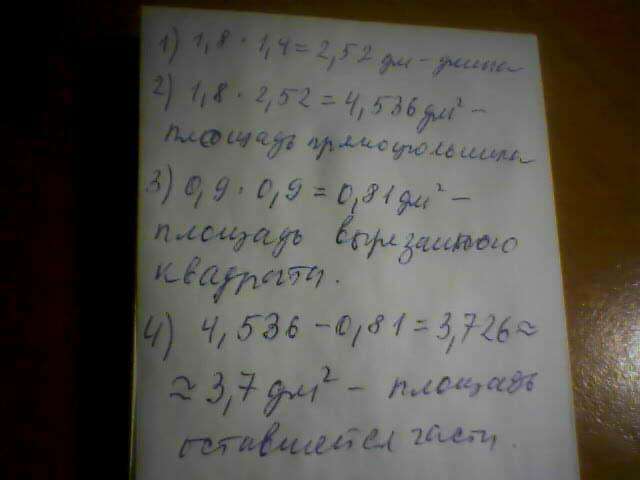 1) 1,8 · 1,4 = 2,52 дм - длина
2) 1,8 · 2,52 = 4,536 дм² -
площадь прямоугольника
3) 0,9 · 0,9 = 0,81 дм² -
площадь вырезанного
квадрата.
4) 4,536 - 0,81 = 3,726 ≈
≈ 3,7 дм² - площадь
оставшейся части.